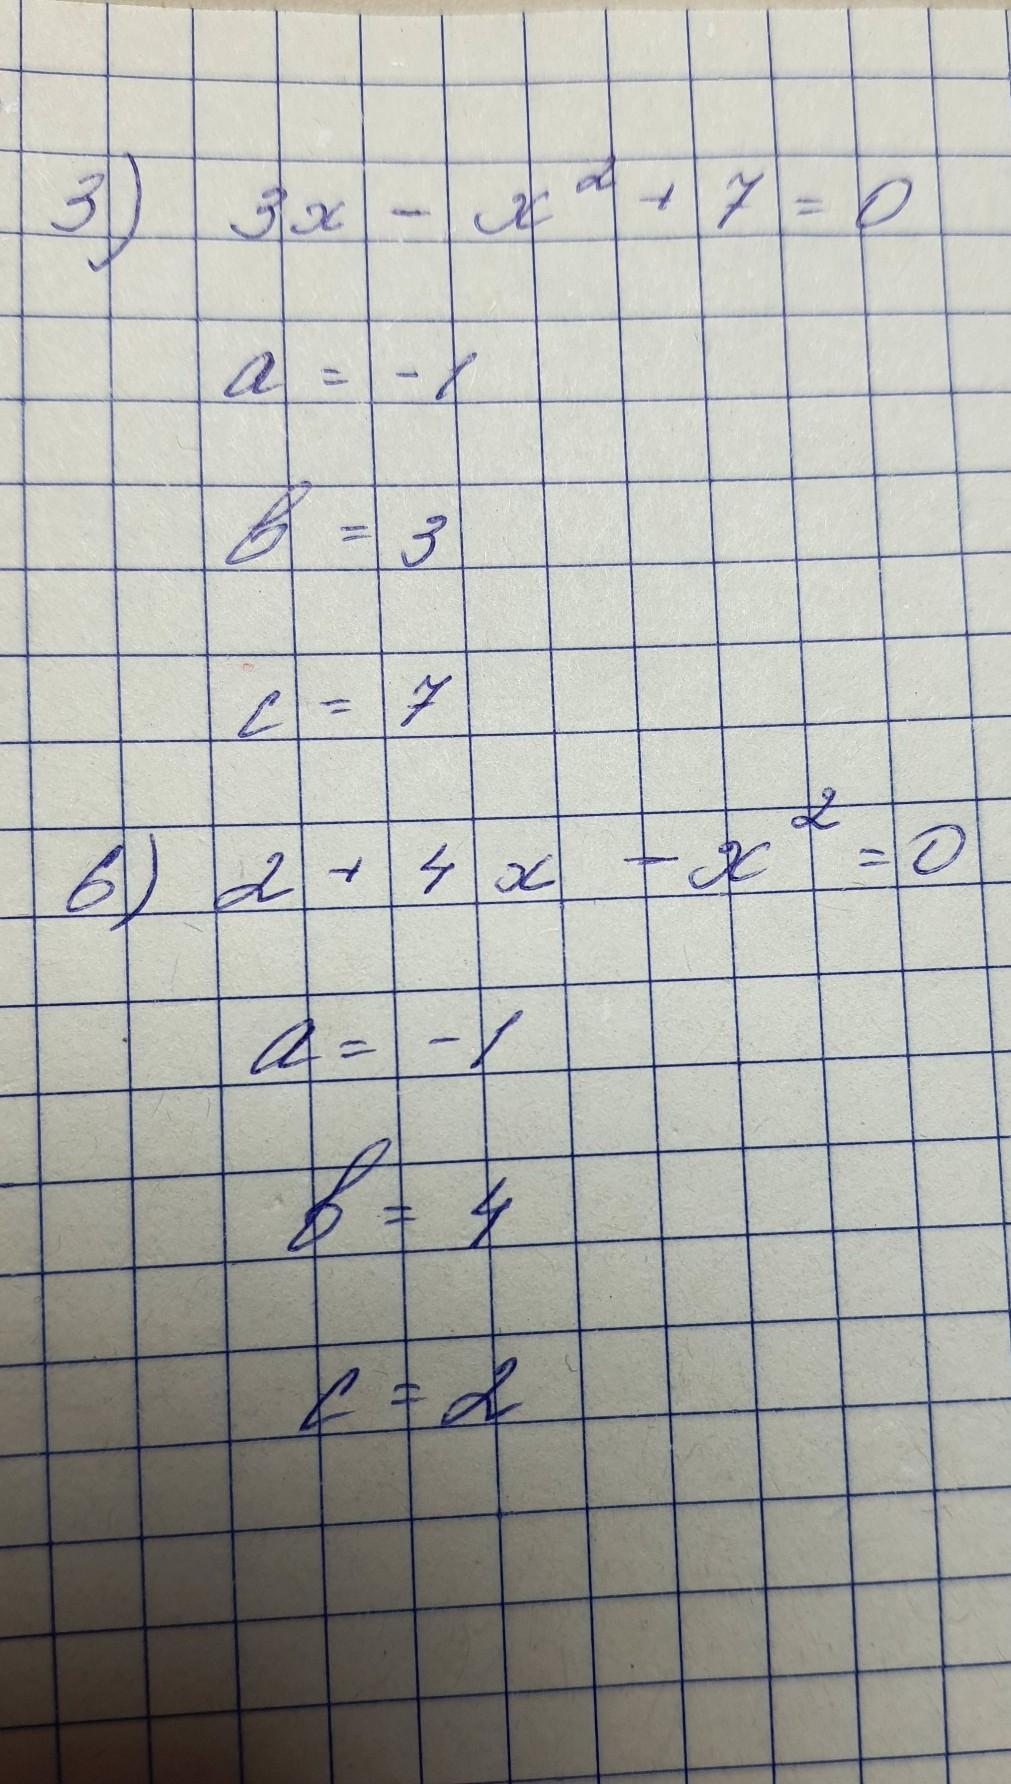 3) 3x - x² + 7 = 0
a = -1
b = 3
c = 7
6) 2 + 4x - x² = 0
a = -1
b = 4
c = 2